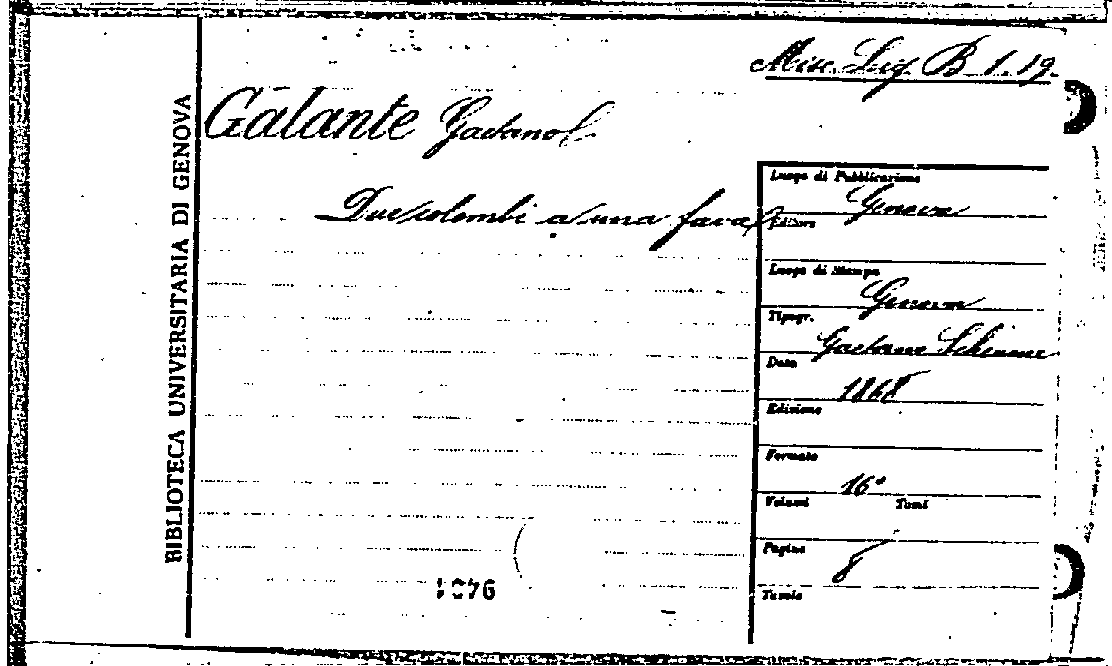 Misc. Lig. B. 1. 19.
Galante Gaetano
Due colombi a una fava
BIBLIOTECA UNIVERSITARIA DI GENOVA
Luogo di Pubblicazione
Genova
Editore
Luogo di Stampa
Genova
Tipogr.
Gaetano Schenone
Data
1868
Edizione
Formato
16°
Volumi Tomi
Pagine
8
Tavole